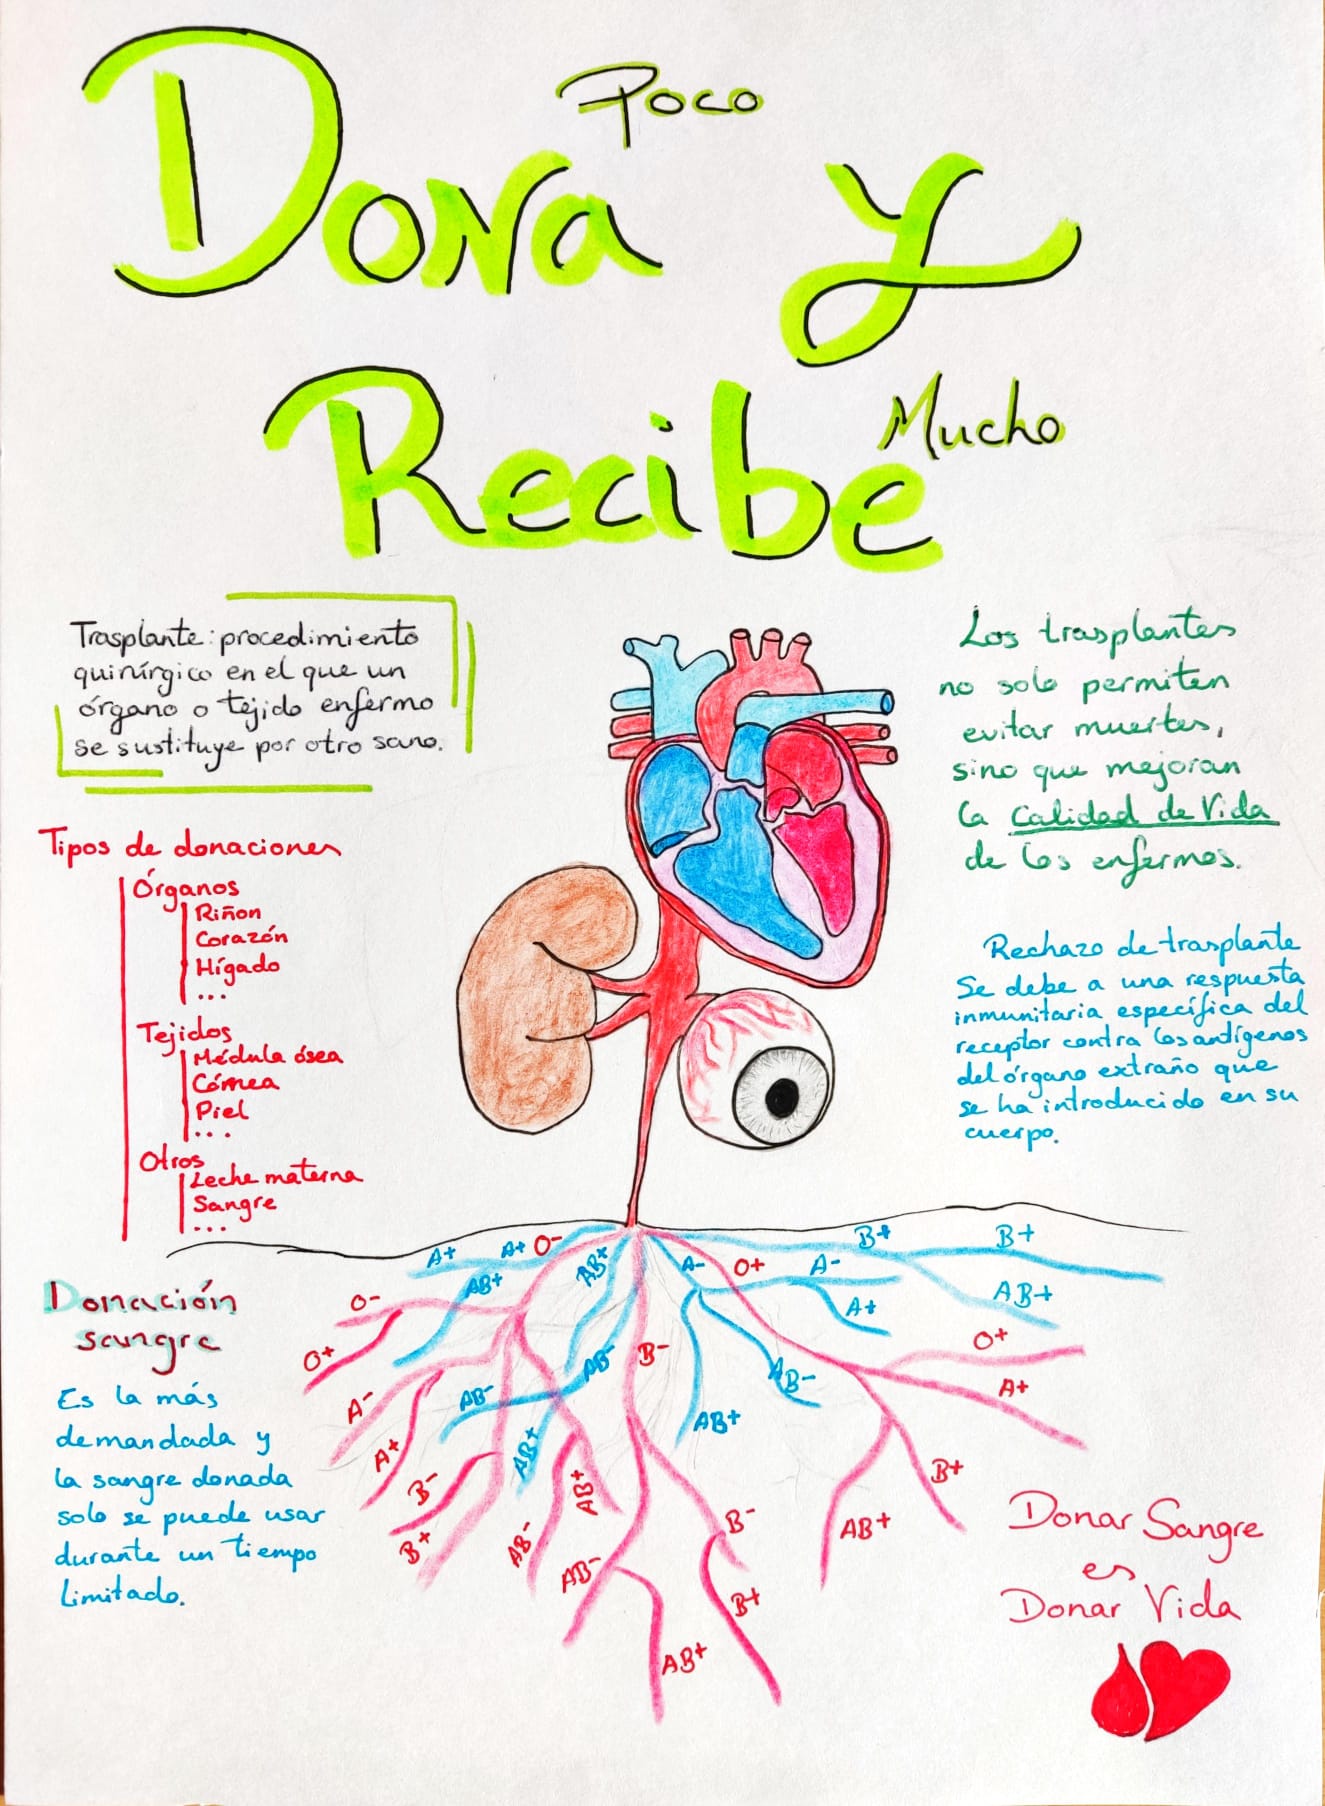 Dona Poco y
Recibe Mucho
Trasplante: procedimiento
quirúrgico en el que un
órgano o tejido enfermo
se sustituye por otro sano.
Los trasplantes
no solo permiten
evitar muertes,
sino que mejoran
la calidad de Vida
de los enfermos.
Tipos de donaciones
Órganos
Riñon
Corazón
Hígado
...
Tejidos
Médula ósea
Córnea
Piel
...
Otros
Leche materna
Sangre
...
Rechazo de trasplante
Se debe a una respuesta
inmunitaria específica del
receptor contra los antígenos
del órgano extraño que
se ha introducido en su
cuerpo.
A+ A+ O- AB+ A- O+ A- B+ B+
AB+ A+ AB+
O-
O+ B- O+
A- AB- AB- AB- A+
A+ AB+ AB+
B- AB+ B+
B+ AB- B- AB+
AB- B+
AB+
Donación
sangre
Es la más
demandada y
la sangre donada
solo se puede usar
durante un tiempo
limitado.
Donar Sangre
es
Donar Vida